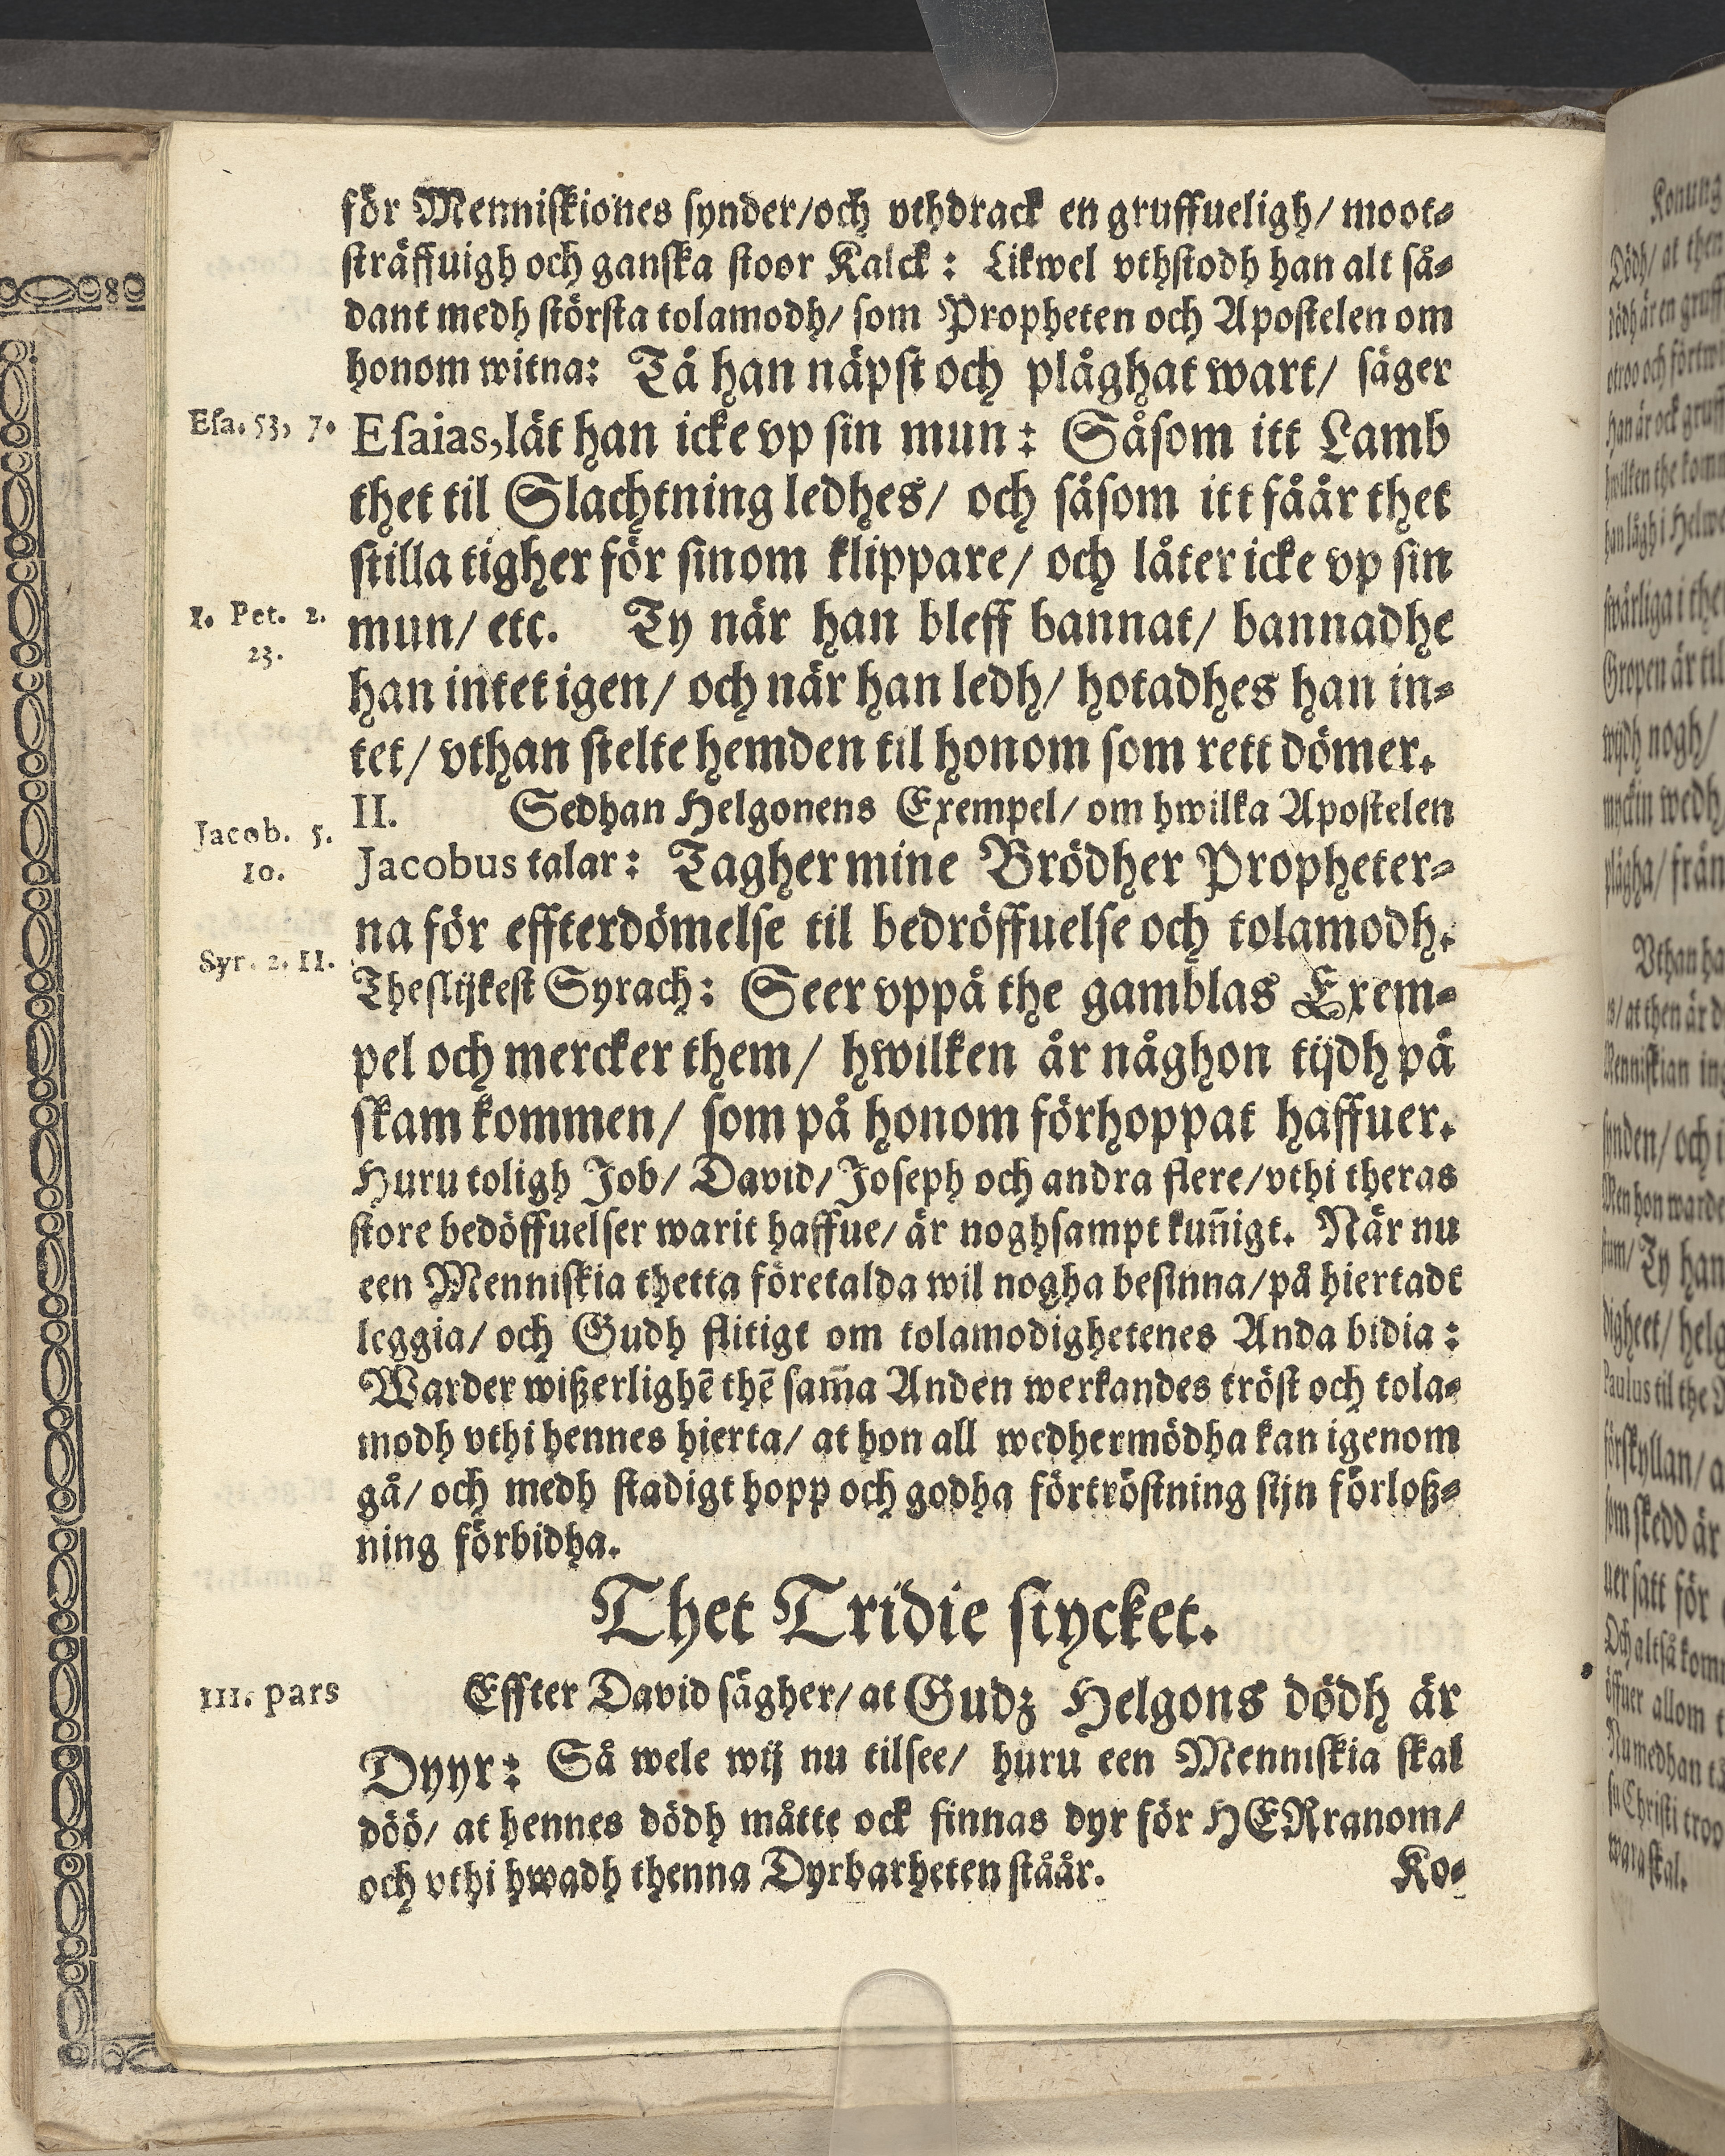 för Menniskiones synder/och vthdrack en gruffueligh/ moot-
sträffuigh och ganska stoor Kalck: Likwel vthstodh han alt så-
dant medh största tolamodh/ som Propheten och Apostelen om
honom witna: Tå han näpst och plåghat wart/ säger
Esa. 53, 7.
Esaias, lät han icke vp sin mun: Såsom itt Lamb
thet til Slachtning ledhes/ och såsom itt fåår thet
stilla tigher för sinom klippare/ och låter icke vp sin
1. Pet. 2.
23.
mun/ etc. Ty när han bleff bannat/ bannadhe
han intet igen/ och när han ledh/ hotadhes han in-
tet/ vthan stelte hemden til honom som rett dömer.
II. Sedhan Helgonens Exempel/ om hwilka Apostelen
Jacob. 5.
10.
Jacobus talar: Tagher mine Brödher Propheter-
na för effterdömelse til bedröffuelse och tolamodh.
Syr. 2. 11.
Theslijkest Syrach: Seer vppå the gamblas Exem-
pel och mercker them/ hwilken år någhon tijdh på
skam kommen/ som på honom förhoppat haffuer.
Huru toligh Job/ David/ Joseph och andra flere/vthi theras
store bedöffuelser warit haffue/ är noghsampt kun̄igt. När nu
een Menniskia thetta företalda wil nogha besinna/på hiertadt
leggia/ och Gudh flitigt om tolamodighetenes Anda bidia:
Warder wißerlighē thē sam̄a Anden werkandes tröst och tola-
modh vthi hennes hierta/ at hon all wedhermödha kan igenom
gå/ och medh stadigt hopp och godha förtröstning sijn förloß-
ning förbidha.
Thet Tridie stycket.
III. pars
Effter David sägher/ at Gudz Helgons dödh är
Dyyr: Så wele wij nu tilsee/ huru een Menniskia skal
döö/ at hennes dödh måtte ock finnas dyr för HERranom/
och vthi hwadh thenna Dyrbarheten ståår.
Ko-